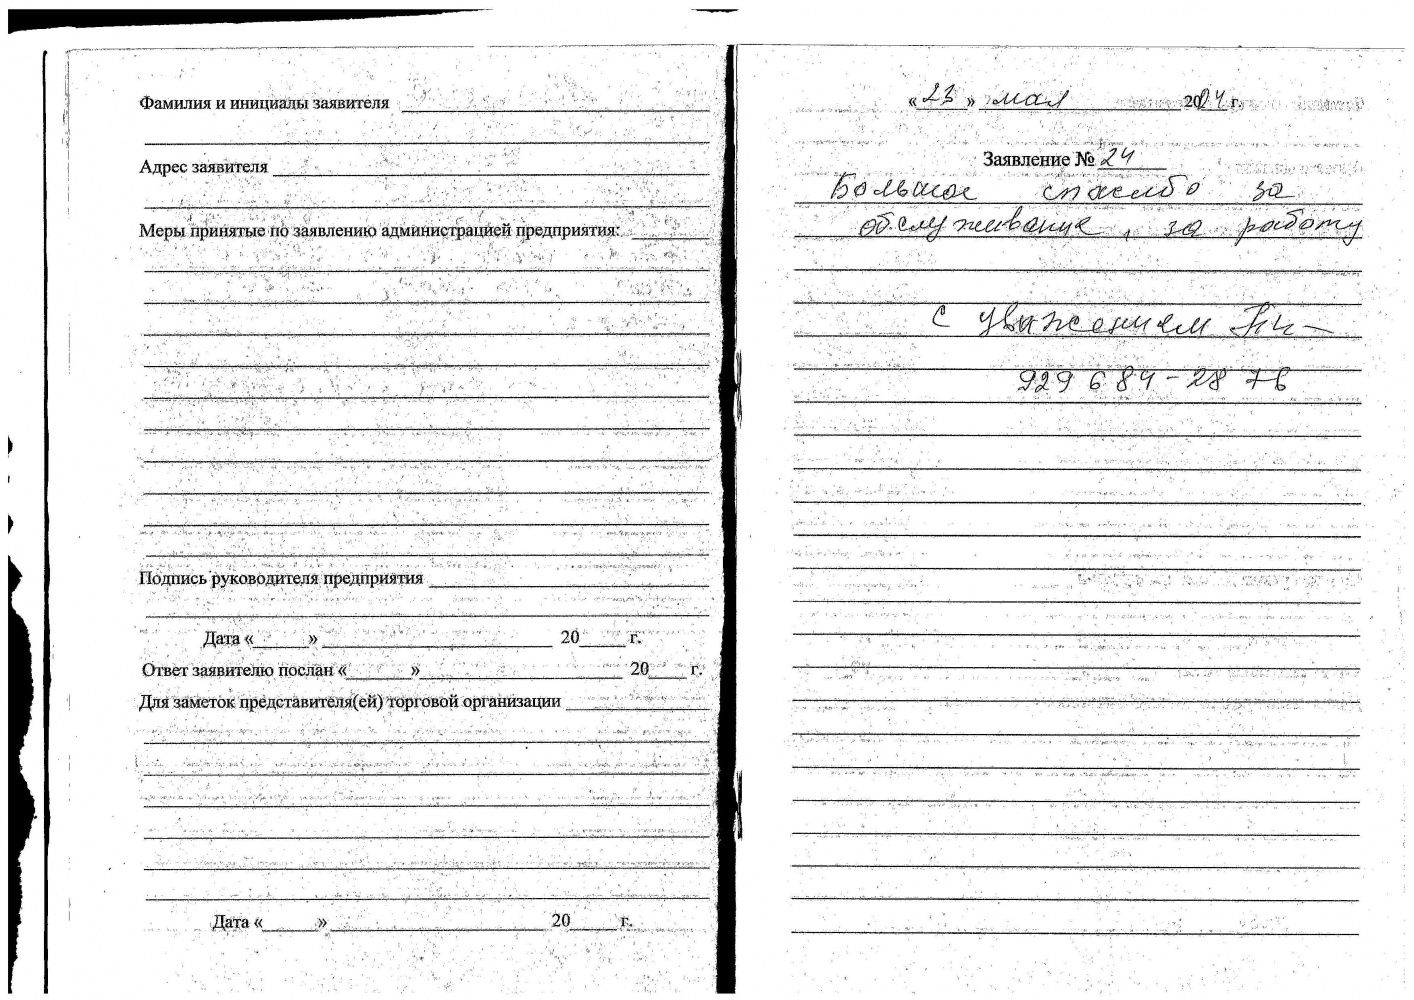 Фамилия и инициалы заявителя
Адрес заявителя
Меры принятые по заявлению администрацией предприятия:
Подпись руководителя предприятия
Дата « » 20 г.
Ответ заявителю послан « » 20 г.
Для заметок представителя(ей) торговой организации
Дата « » 20 г.
«23» мая 2024 г.
Заявление № 24
Большое спасибо за
обслуживание, за работу
С уважением
929 684-28 76